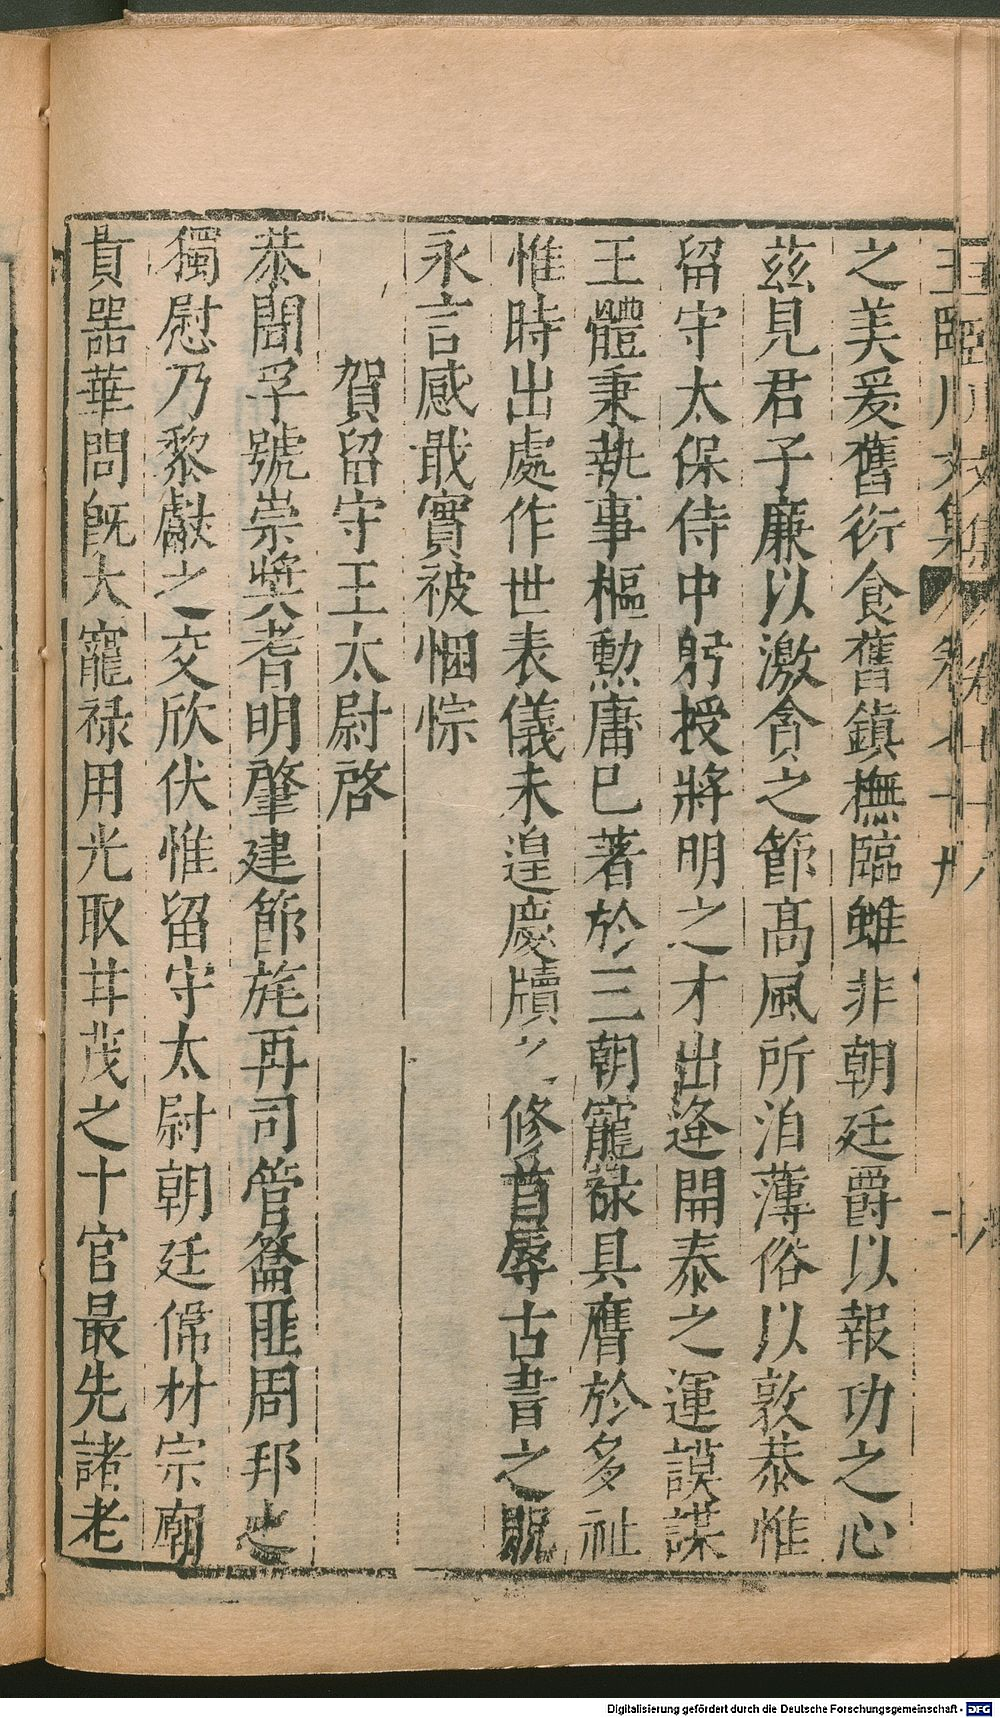 之美爰舊衍食舊鎮撫臨雖非朝廷爵以報功之心
茲見君子廉以激貪之節高風所洎薄俗以敦恭惟
留守太保侍中躬授將明之才出逢開泰之運謨謀
王體秉執事樞勳庸已著於三朝寵祿具膺於多祉
惟時出處作世表儀未遑慶牘之修首辱古書之貺
永言感戢實被悃悰
賀留守王太尉啓
恭聞孚號崇奬耆明肇建節旄再司管籥匪周邦之
獨慰乃黎獻之交欣伏惟留守太尉朝廷僞材宗廟
貴器華問旣大寵祿用光取甘茂之十官最先諸老
Digitalisierung gefördert durch die Deutsche Forschungsgemeinschaft - DFG